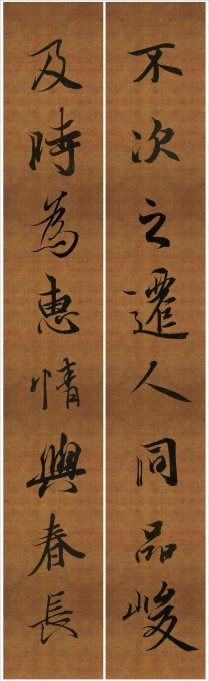 不次之遷人同品峻
及時為惠情與春長